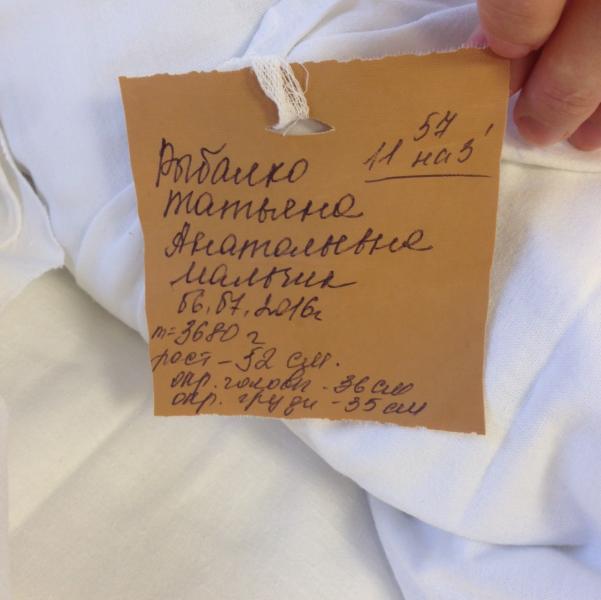 57
11 на 5'
Рыбалко
Татьяна
Анатольевна
мальчик
06.07.2016г
m=3680 г
рост - 52 см.
окр. головы - 36 см
окр. груди - 35 см